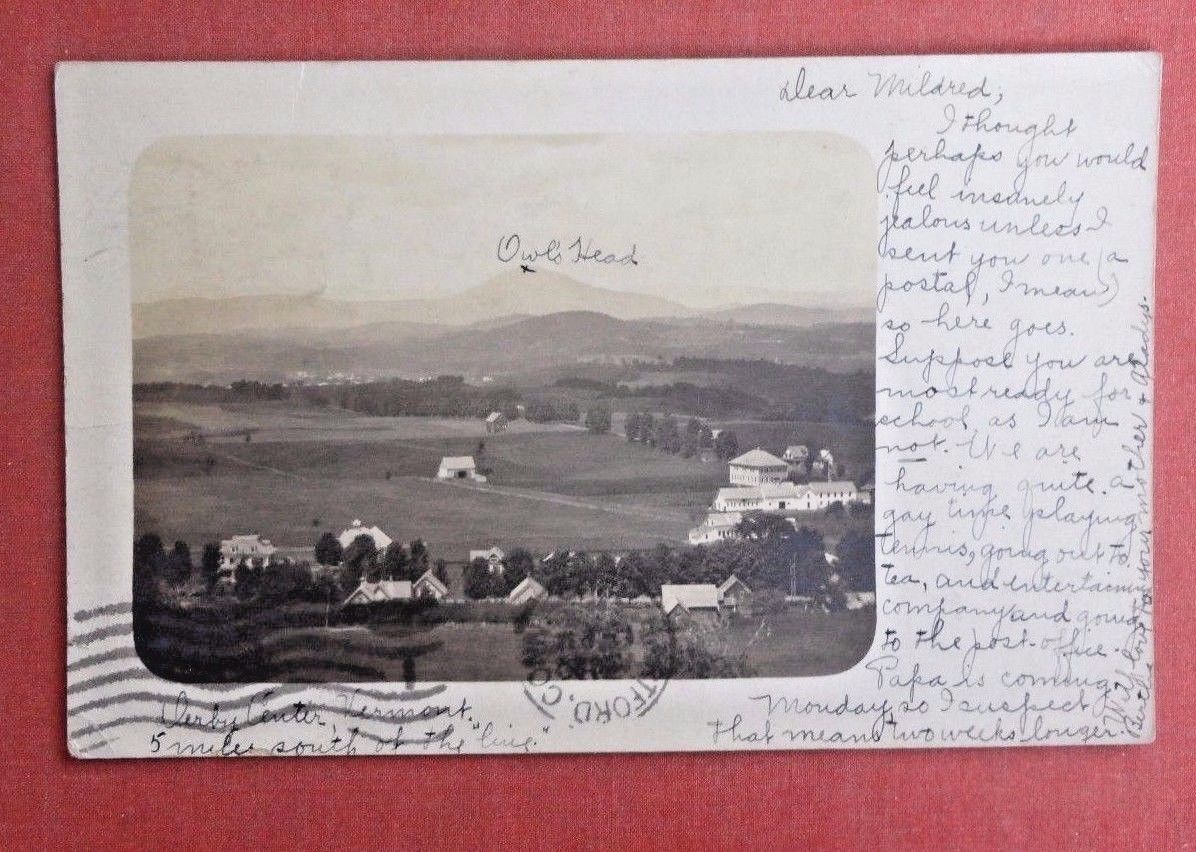 Dear Mildred,
I thought
perhaps you would
feel insanely
jealous unless I
sent you one (a
postal, I mean)
so here goes.
Suppose you are
most ready for
school, as I am
not. We are
having quite a
gay time playing
tennis, going out to
tea, and entertaining
company and going
to the post-office.
Papa is coming
Monday so I suspect
that means two weeks longer.
With love to your mother & Gladys.
Owl's Head
x
Derby Center, Vermont.
5 miles south of the "line."
TFORD, CO